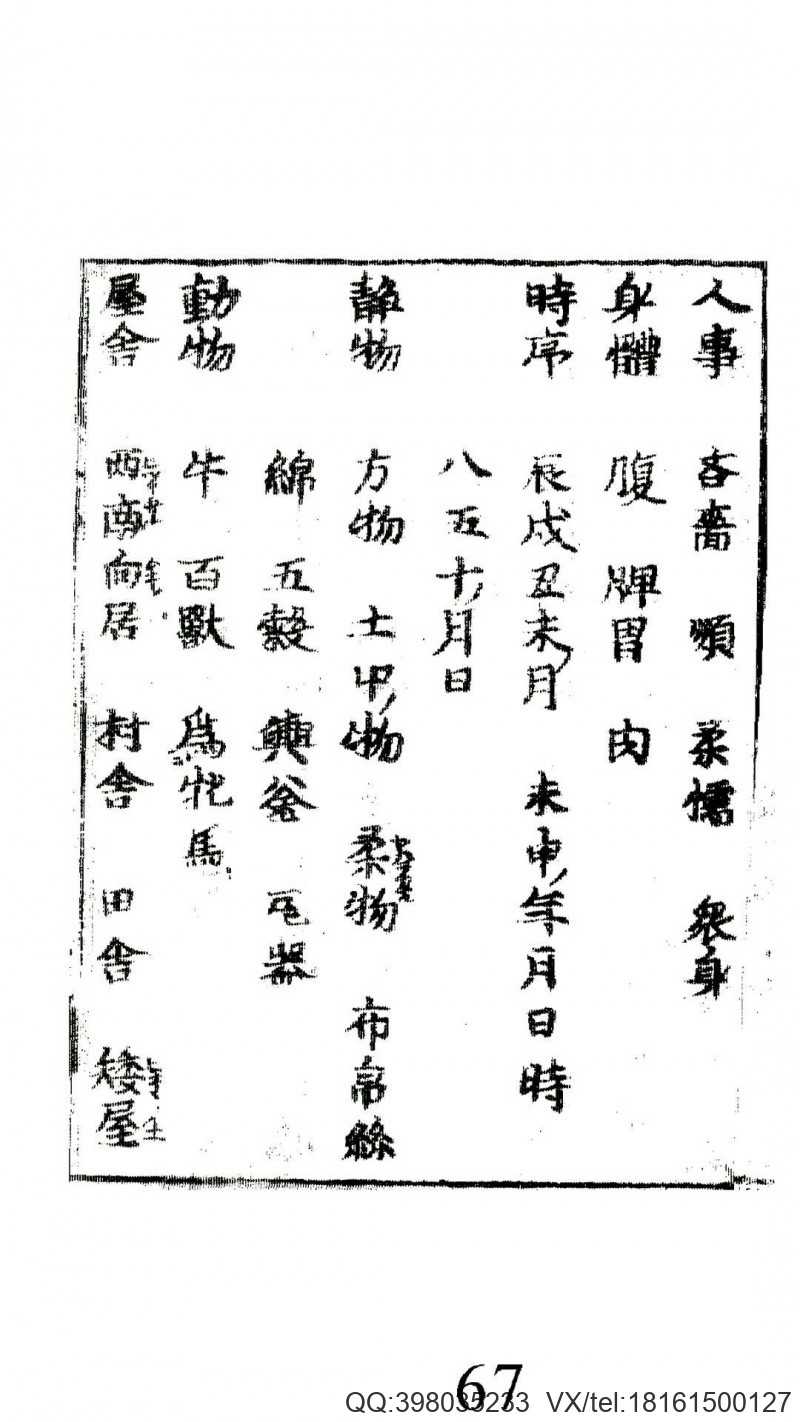 人事 吝嗇 順 柔懦 衆身
身體 腹 脾胃 肉
時序 辰戌丑未月 未申年月日時
八五十月日
靜物 方物 土中物 柔物 布帛絲
綿 五穀 輿釜 瓦器
動物 牛 百獸 為牝馬
屋舍 西南向居 村舍 田舍 矮屋
67
QQ:398035233 VX/tel:18161500127